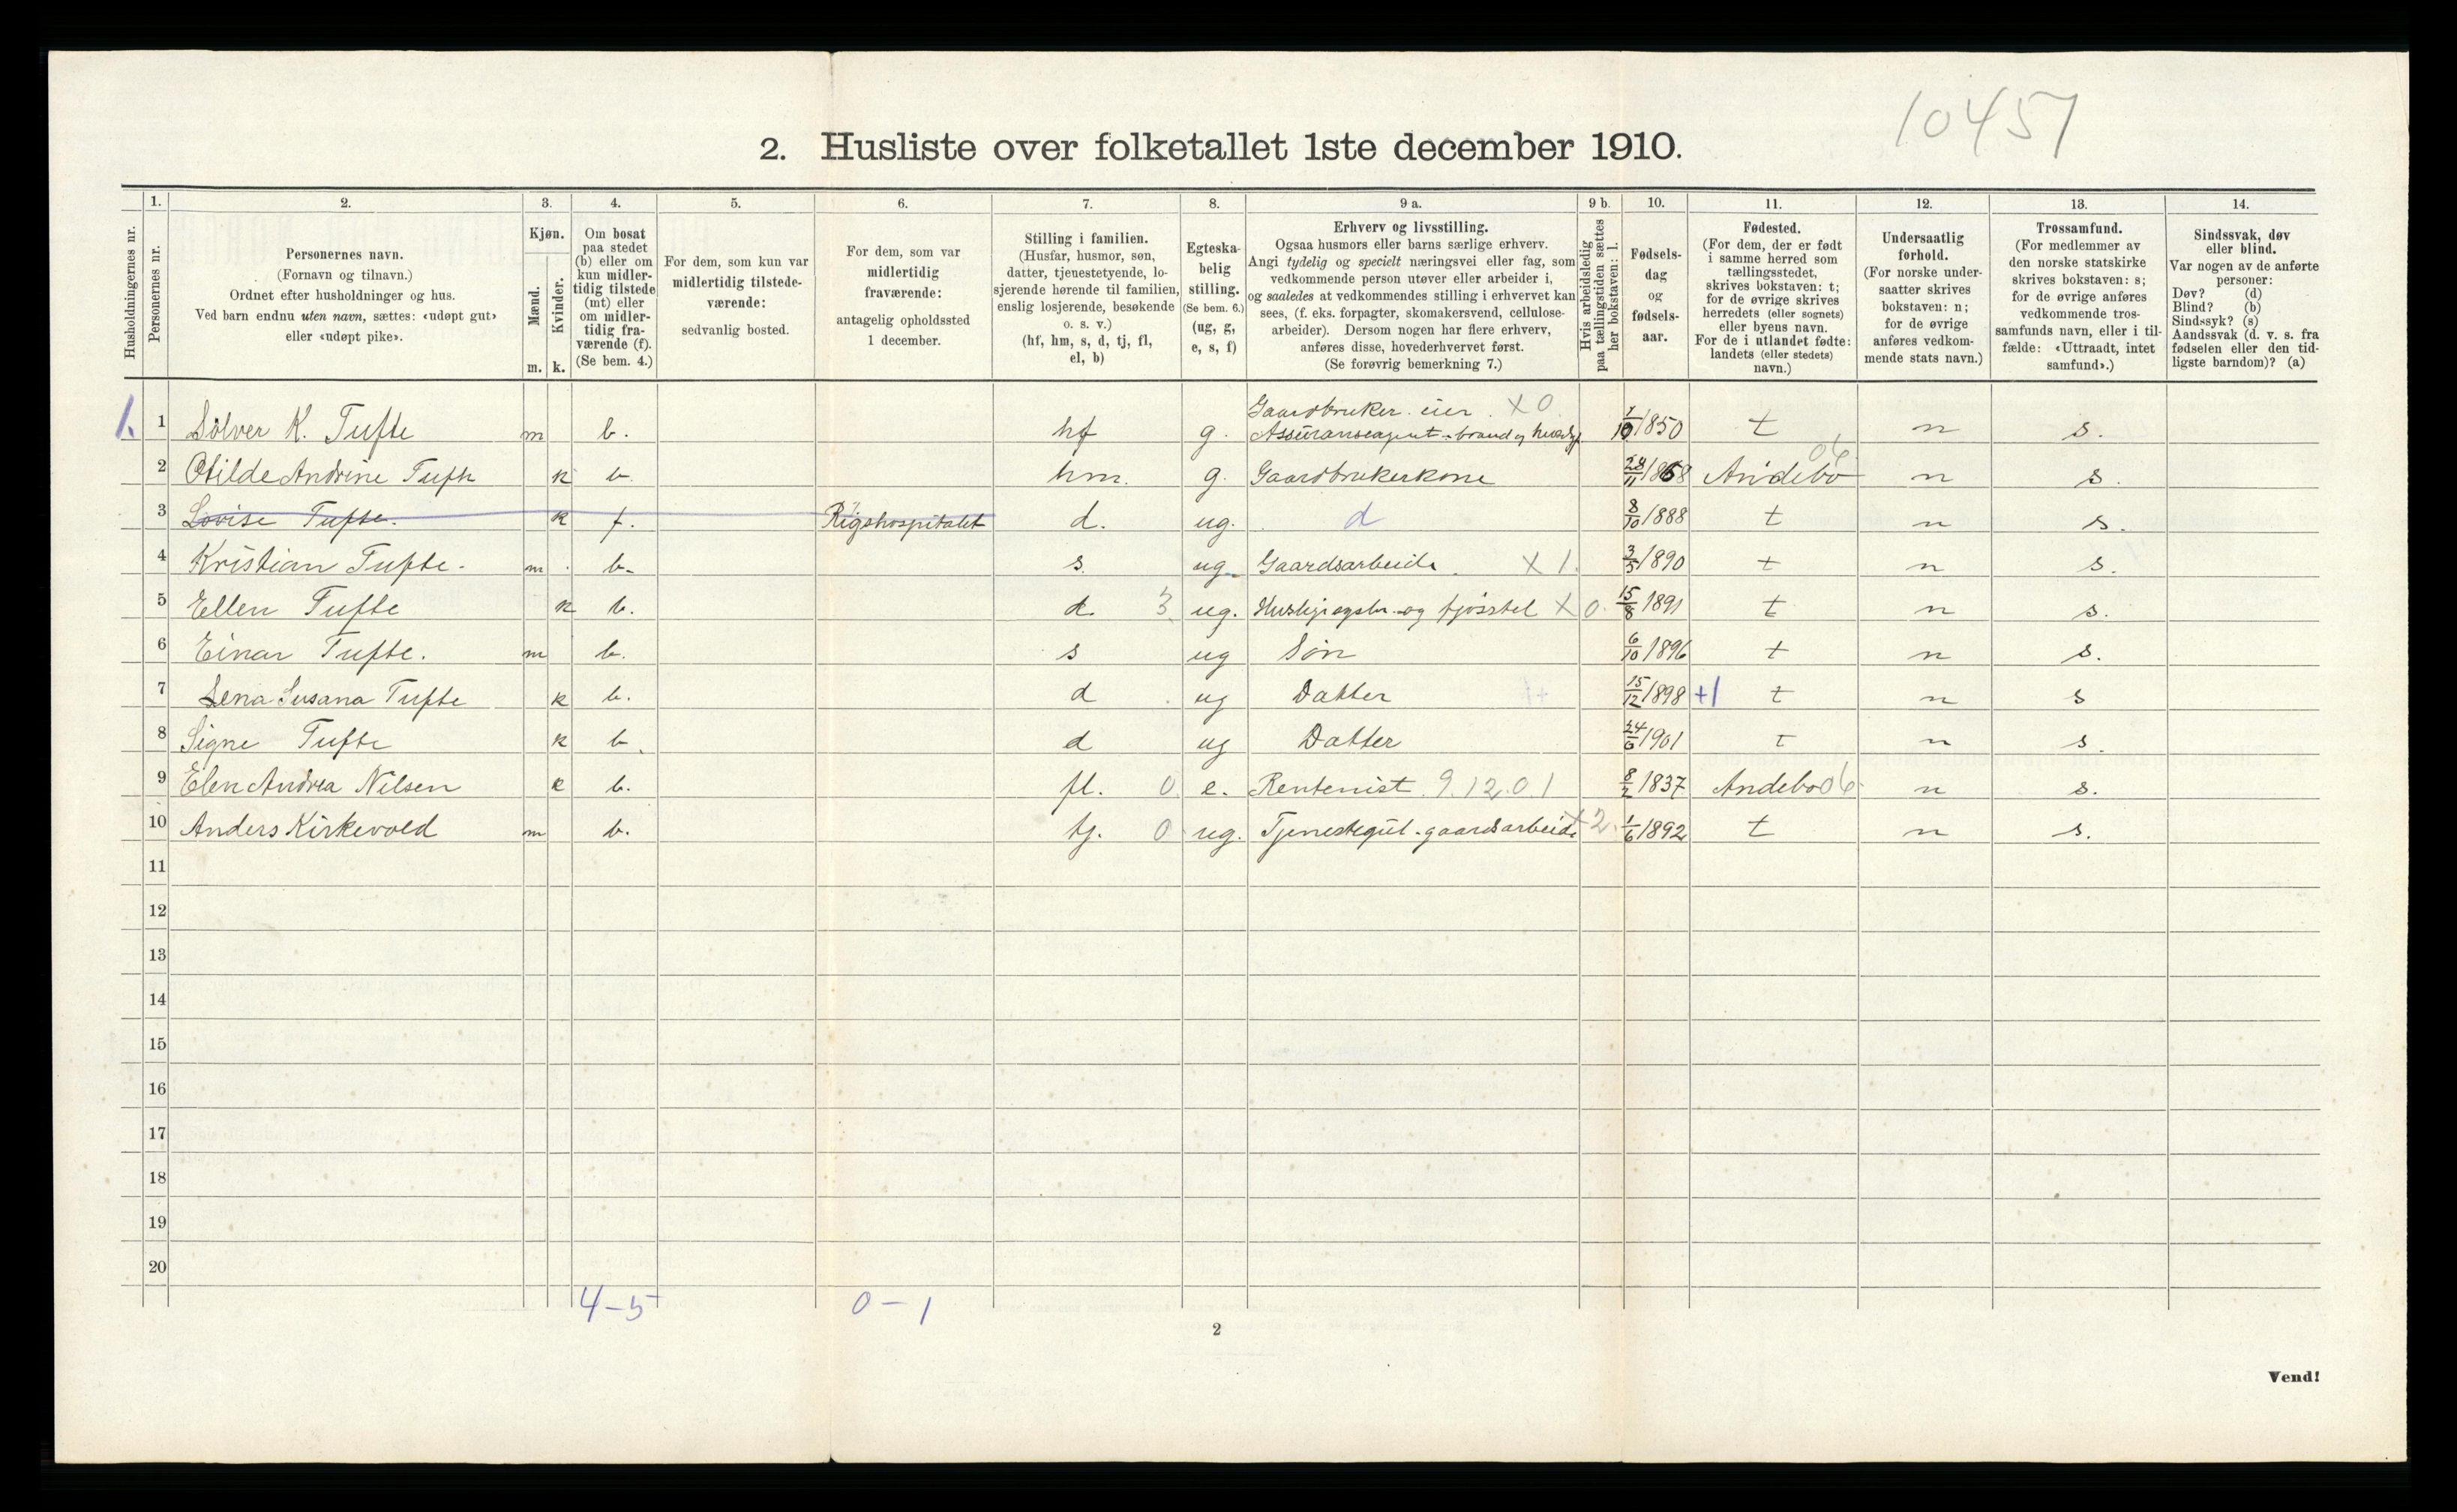 10457
2. Husliste over folketallet 1ste december 1910.
1. 2. 3. 4. 5. 6. 7. 8. 9 a. 9 b. 10. 11. 12. 13. 14.
Husholdningernes nr.
Personernes nr.
Personernes navn.
(Fornavn og tilnavn.)
Ordnet efter husholdninger og hus.
Ved barn endnu uten navn, sættes: «udøpt gut»
eller «udøpt pike».
Kjøn.
Mænd.
Kvinder.
m. k.
Om bosat
paa stedet
(b) eller om
kun midler-
tidig tilstede
(mt) eller
om midler-
tidig fra-
værende (f).
(Se bem. 4.)
For dem, som kun var
midlertidig tilstede-
værende:
sedvanlig bosted.
For dem, som var
midlertidig
fraværende:
antagelig opholdssted
1 december.
Stilling i familien.
(Husfar, husmor, søn,
datter, tjenestetyende, lo-
sjerende hørende til familien,
enslig losjerende, besøkende
o. s. v.)
(hf, hm, s, d, tj, fl,
el, b)
Egteska-
belig
stilling.
(Se bem. 6.)
(ug, g,
e, s, f)
Erhverv og livsstilling.
Ogsaa husmors eller barns særlige erhverv.
Angi tydelig og specielt næringsvei eller fag, som
vedkommende person utøver eller arbeider i,
og saaledes at vedkommendes stilling i erhvervet kan
sees, (f. eks. forpagter, skomakersvend, cellulose-
arbeider). Dersom nogen har flere erhverv,
anføres disse, hovederhvervet først.
(Se forøvrig bemerkning 7.)
Hvis arbeidsledig
paa tællingstiden sættes
her bokstaven: l.
Fødsels-
dag
og
fødsels-
aar.
Fødested.
(For dem, der er født
i samme herred som
tællingsstedet,
skrives bokstaven: t;
for de øvrige skrives
herredets (eller sognets)
eller byens navn.
For de i utlandet fødte:
landets (eller stedets)
navn.)
Undersaatlig
forhold.
(For norske under-
saatter skrives
bokstaven: n;
for de øvrige
anføres vedkom-
mende stats navn.)
Trossamfund.
(For medlemmer av
den norske statskirke
skrives bokstaven: s;
for de øvrige anføres
vedkommende tros-
samfunds navn, eller i til-
fælde: «Uttraadt, intet
samfund».)
Sindssvak, døv
eller blind.
Var nogen av de anførte
personer:
Døv? (d)
Blind? (b)
Sindssyk? (s)
Aandssvak (d. v. s. fra
fødselen eller den tid-
ligste barndom)? (a)
Gaardbruker eier. X 0
1. 1 Sølver K. Tufte m b. hf g. Assuranseagent - brand og 1850 t n s.
2 Otilde Andrine Tufte k b. hm. g. Gaardbrukerkone 28/11 1868 Andebo 06 n s.
3 Lovise Tufte. k f. Rigshospitalet d. ug. d 8/10 1888 t n s.
4 Kristian Tufte. m b. s. ug. Gaardsarbeide. X 1. 3/5 1890 t n s.
5 Ellen Tufte k b. d. 3 ug. og fjøsstel X 0. 15/8 1891 t n s.
6 Einar Tufte. m b. s ug Søn 6/10 1896 t n s.
7 Lena Susana Tufte k b. d ug Datter 15/12 1898 +1 t n s
8 Signe Tufte k b. d ug Datter 24/6 1901 t n s.
9 Elen Andrea Nilsen k b. fl. 0 e. Rentenist 9.12.01 8/2 1837 Andebo 06 n s.
10 Anders Kirkevold m b. tj. 0 ug. Tjenestegut - gaardsarbeide +2. 1/6 1892 t n s.
11
12
13
14
15
16
17
18
19
20
4-5 0-1
2
Vend!